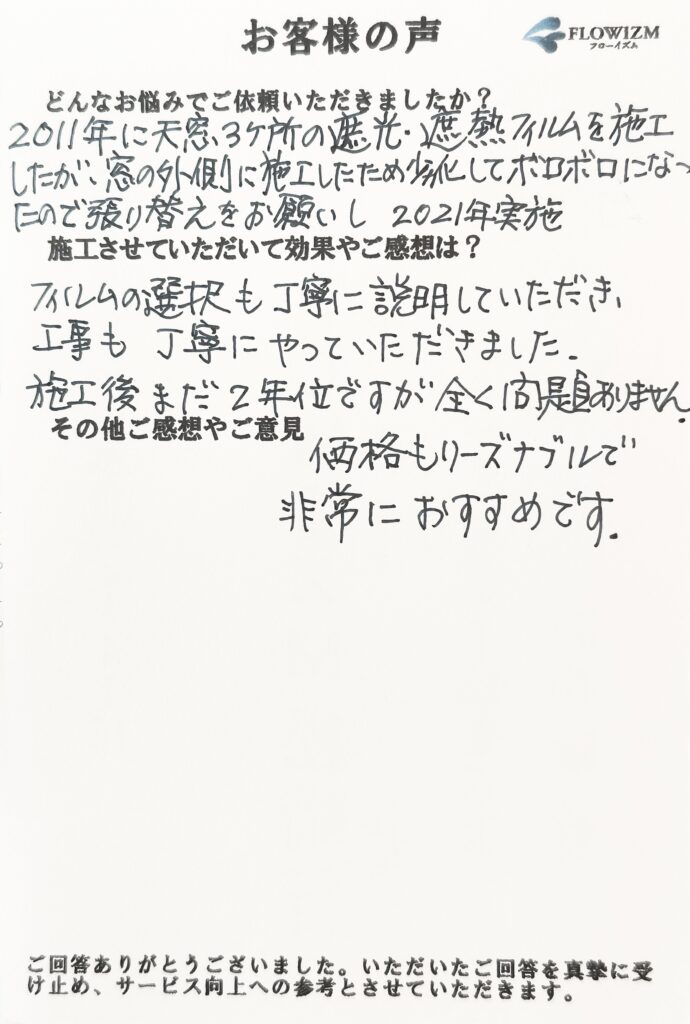 お客様の声
FLOWIZM
フローイズム
どんなお悩みでご依頼いただきましたか？
2011年に天窓、3ヶ所の遮光・遮熱フィルムを施工
したが、窓の外側に施工したため劣化してボロボロになっ
たので張り替えをお願いし 2021年実施
施工させていただいて効果やご感想は？
フィルムの選択も丁寧に説明していただき、
工事も 丁寧にやっていただきました.
施工後まだ2年位ですが全く問題ありません.
その他ご感想やご意見
価格もリーズナブルで
非常におすすめです.
ご回答ありがとうございました。いただいたご回答を真摯に受
け止め、サービス向上への参考とさせていただきます。